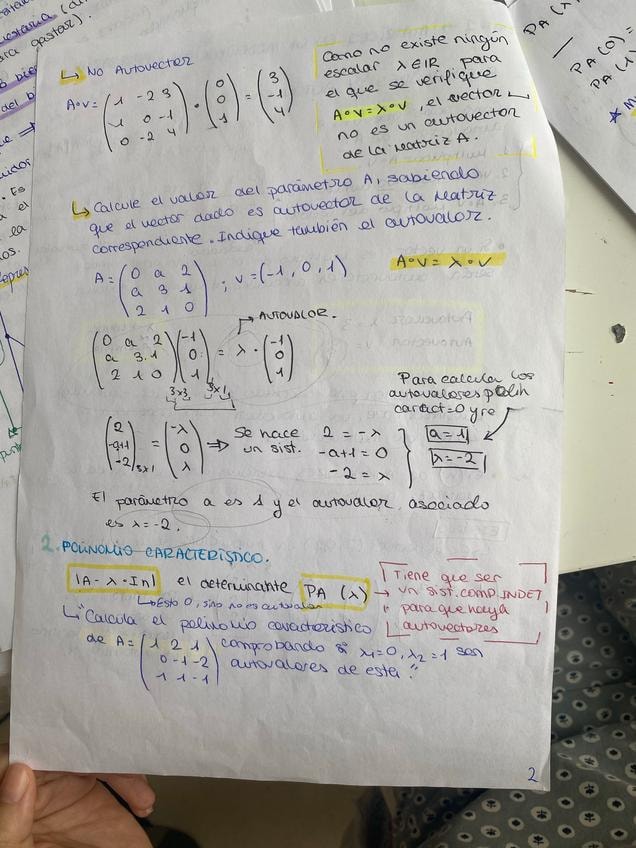 ↳ No Autovector
A∘v = (1 -2 3 / -1 0 -1 / 0 -2 4) · (0 / 0 / 1) = (3 / -1 / 4)
Como no existe ningún
escalar λ∈IR para
el que se verifique
A∘v = λ∘v, el vector
no es un autovector
de la Matriz A.
↳ Calcule el valor del parámetro A, sabiendo
que el vector dado es autovector de la Matriz
correspondiente. Indique también el autovalor.
A = (0 a 2 / a 3 1 / 2 1 0) ; v = (-1, 0, 1)
A∘v = λ∘v
→ AUTOVALOR.
(0 a 2 / a 3 1 / 2 1 0) (-1 / 0 / 1) = λ · (-1 / 0 / 1)
3x3 3x1
Para calcula los
autovalores
caract=0 y re
(2 / -a+1 / -2) 3x1 = (-λ / 0 / λ) ⇒ Se hace un sist.
2 = -λ
-a+1 = 0
-2 = λ
a=1
λ=-2
El parámetro a es 1 y el autovalor asociado
es λ=-2.
2. POLINOMIO CARACTERÍSTICO.
|A - λ·In| el determinante PA (λ)
↳ Esto 0, sino no es autovalor
Tiene que ser
un sist. comp. INDET
para que haya
autovectores
↳ "Calcula el polinomio característico
de A = (1 2 1 / 0 -1 -2 / 1 1 -1) comprobando si λ1=0, λ2=1 son
autovalores de esta."
2
PA (λ
PA(0) =
PA(1
para gastar).
del b
. Es
la
os.